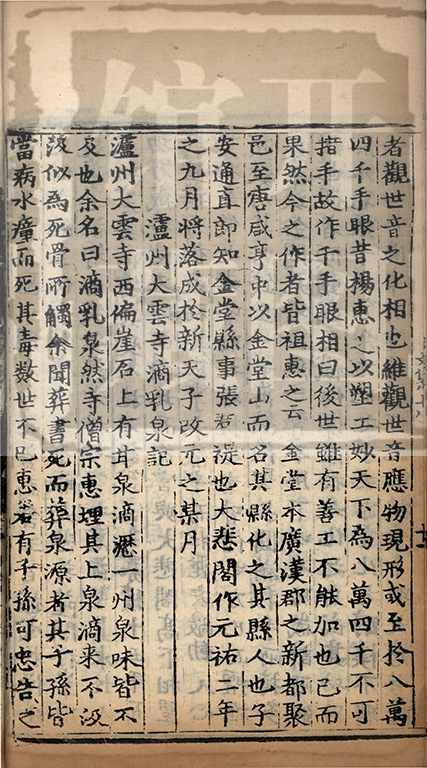 者觀世音之化相也維觀世音應物現形或至於八萬
四千手眼昔楊惠之以塑工妙天下為八萬四千不可
措手故作千手眼相曰後世雖有善工不能加也已而
果然今之作者皆祖惠之云金堂本廣漢郡之新都聚
邑至唐咸亨中以金堂山而名其縣化之其縣人也子
安通直郎知金堂縣事張君禔也大悲閣作元祐二年
之九月將落成於新天子改元之某月
瀘州大雲寺滴乳泉記
瀘州大雲寺西偏崖石上有甘泉滴瀝一州泉味皆不
及也余名曰滴乳泉然寺僧宗惠埋其上泉滴來不汲
汲似為死骨所觸余聞葬書死而葬泉源者其子孫皆
當病水癉而死其毒数世不已惠若有子孫可忠告之